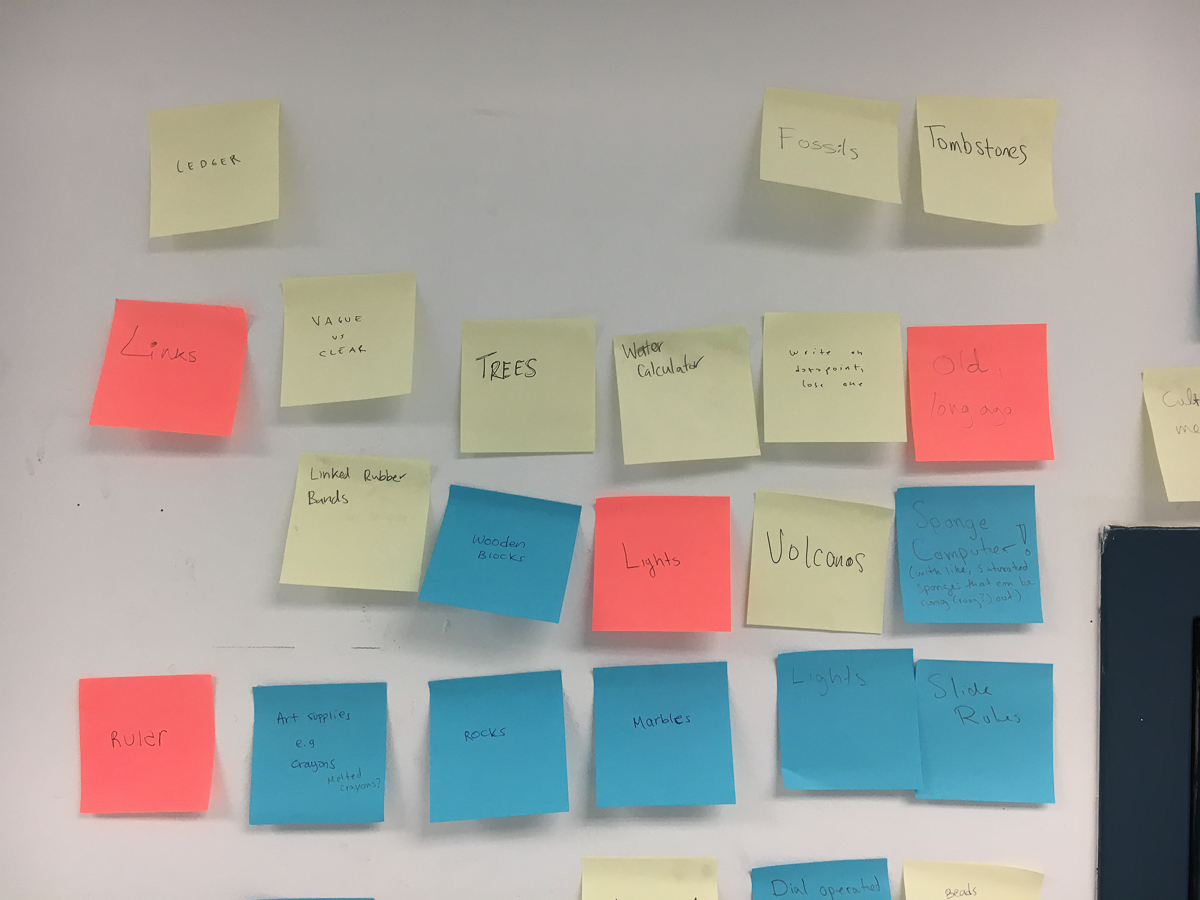 LEDGER
Fossils
Tombstones
Links
VAGUE
VS
CLEAR
TREES
Water
Calculator
write on
datapoint,
lose one
Old,
long ago
Linked Rubber
Bands
Wooden
Blocks
Lights
Volcanos
Sponge
Computer!
(with like, saturated
sponges that can be
rung (rang?) out)
Ruler
Art supplies
e.g
crayons
Melted
crayons?
ROCKS
Marbles
Lights
Slide
Rules
Dial operated
Beads